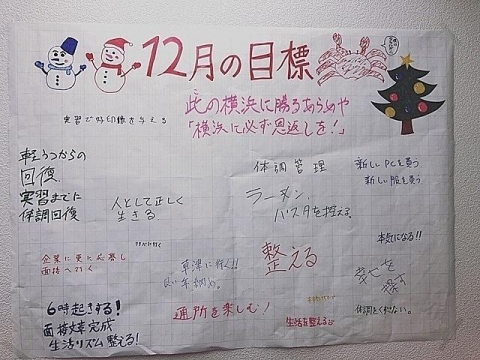 12月の目標
此の横浜に勝るあらめや
「横浜に必ず恩返しを!」
実習で好印象を与える
軽うつからの
回復
実習までに
体調回復
人として正しく
生きる
体調管理
ラーメン、
パスタを控える
新しいPCを買う
新しい服を買う
企業に更に応募し
面接へ行く
草津に行く!!
整える
本気になる!!
幸せを
探す
6時起きする!
面接文章完成
生活リズム整える!
通所を楽しむ!
生活を整える
体調をくずさない。